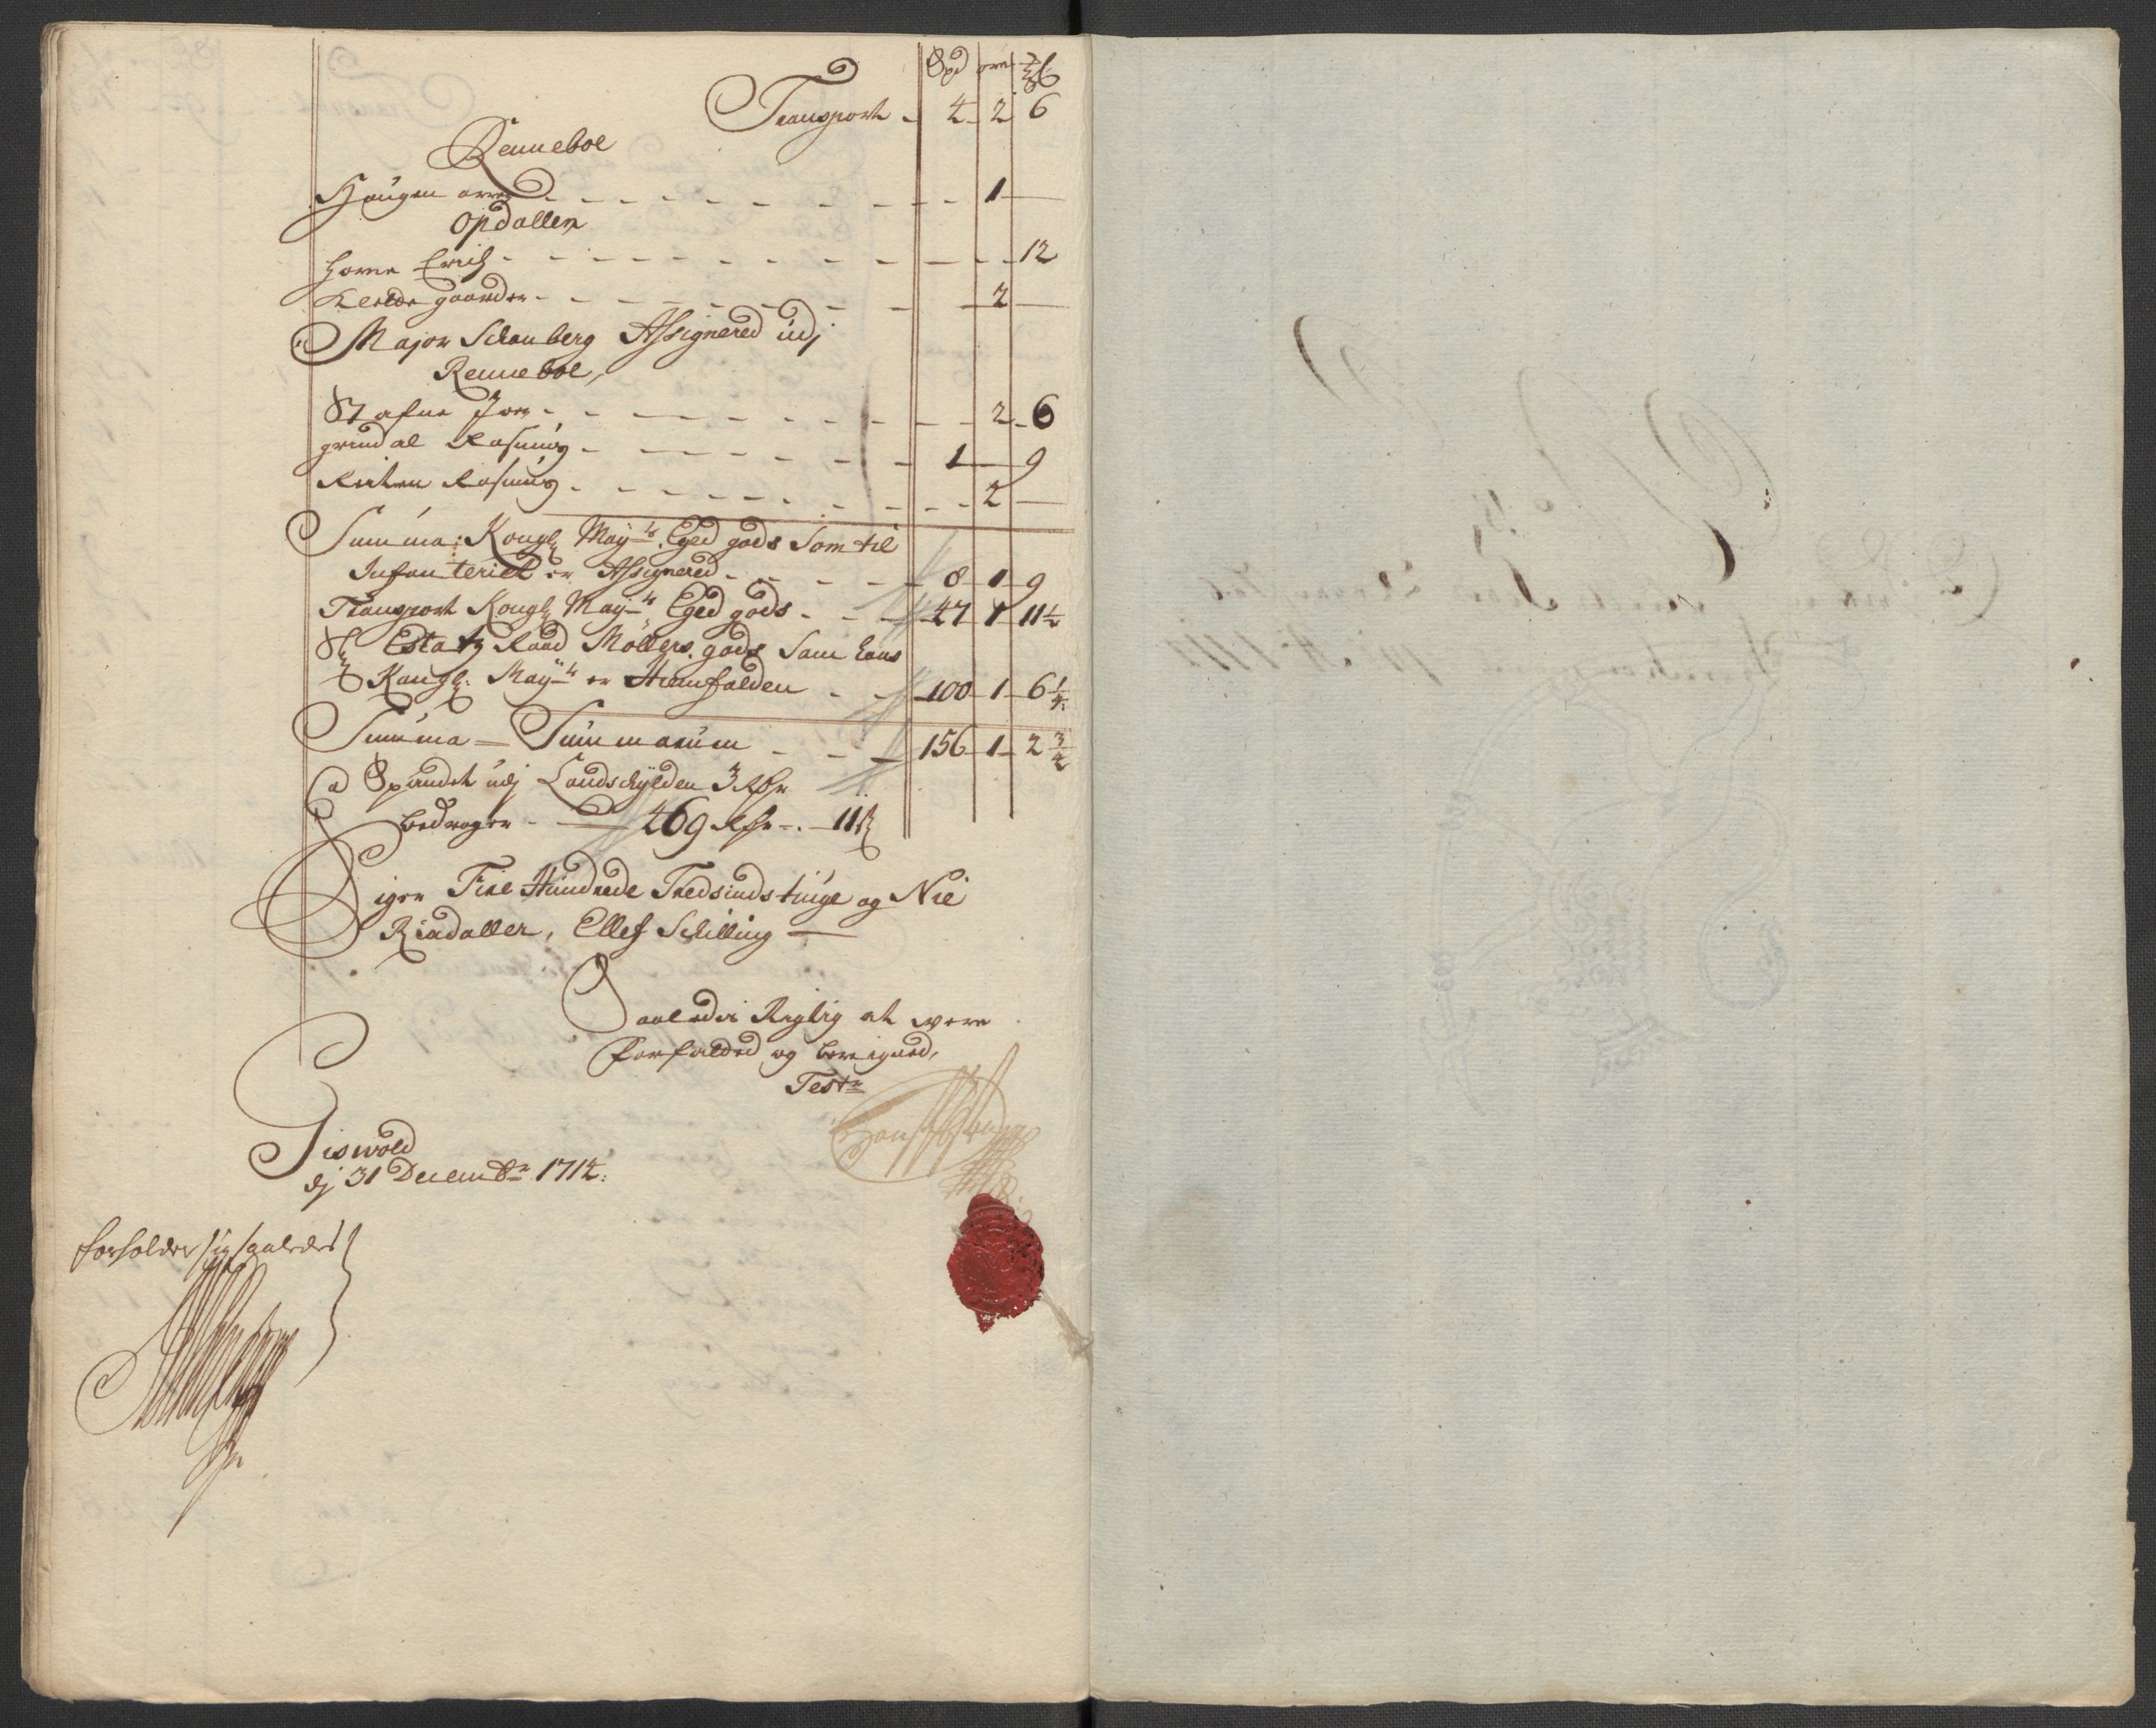 Spd øre
Transport - 4 2 6
Renneboe
Haugen - 1 -
Opdallen
Horne Erich - 12
gaarder - 2 -
Major Schauberg Assignered udj
Renneboe,
Stafne Joen - 2 6
grindal Rasmus - 1 - 9
Rasmus - 2 -
Summa: Kongl: May:ts Eged gods Som til
Infanteriet er Assignered - 8 1 9
Transport Kongl: May:ts Eged gods - 47 1 11½
Sl: Estatz Raad Møllers gods Som hans
Kongl: May:ts er Hiemfalden - 100 1 6¼
Summa - Summarum - 156 1 2¾
a Spandet udj Landschylden 3 Rdr
bedrager - 469 Rdr - 11 ß
Siger Fire Hundrede Tredsindstiuge og Nie
Rixdaller, Ellef Schilling -
Saaledis Rigtig at vere
forfalded og beregned,
Teste
Giswold
dj 31 Decembr 1714:
forholder sig saaledes